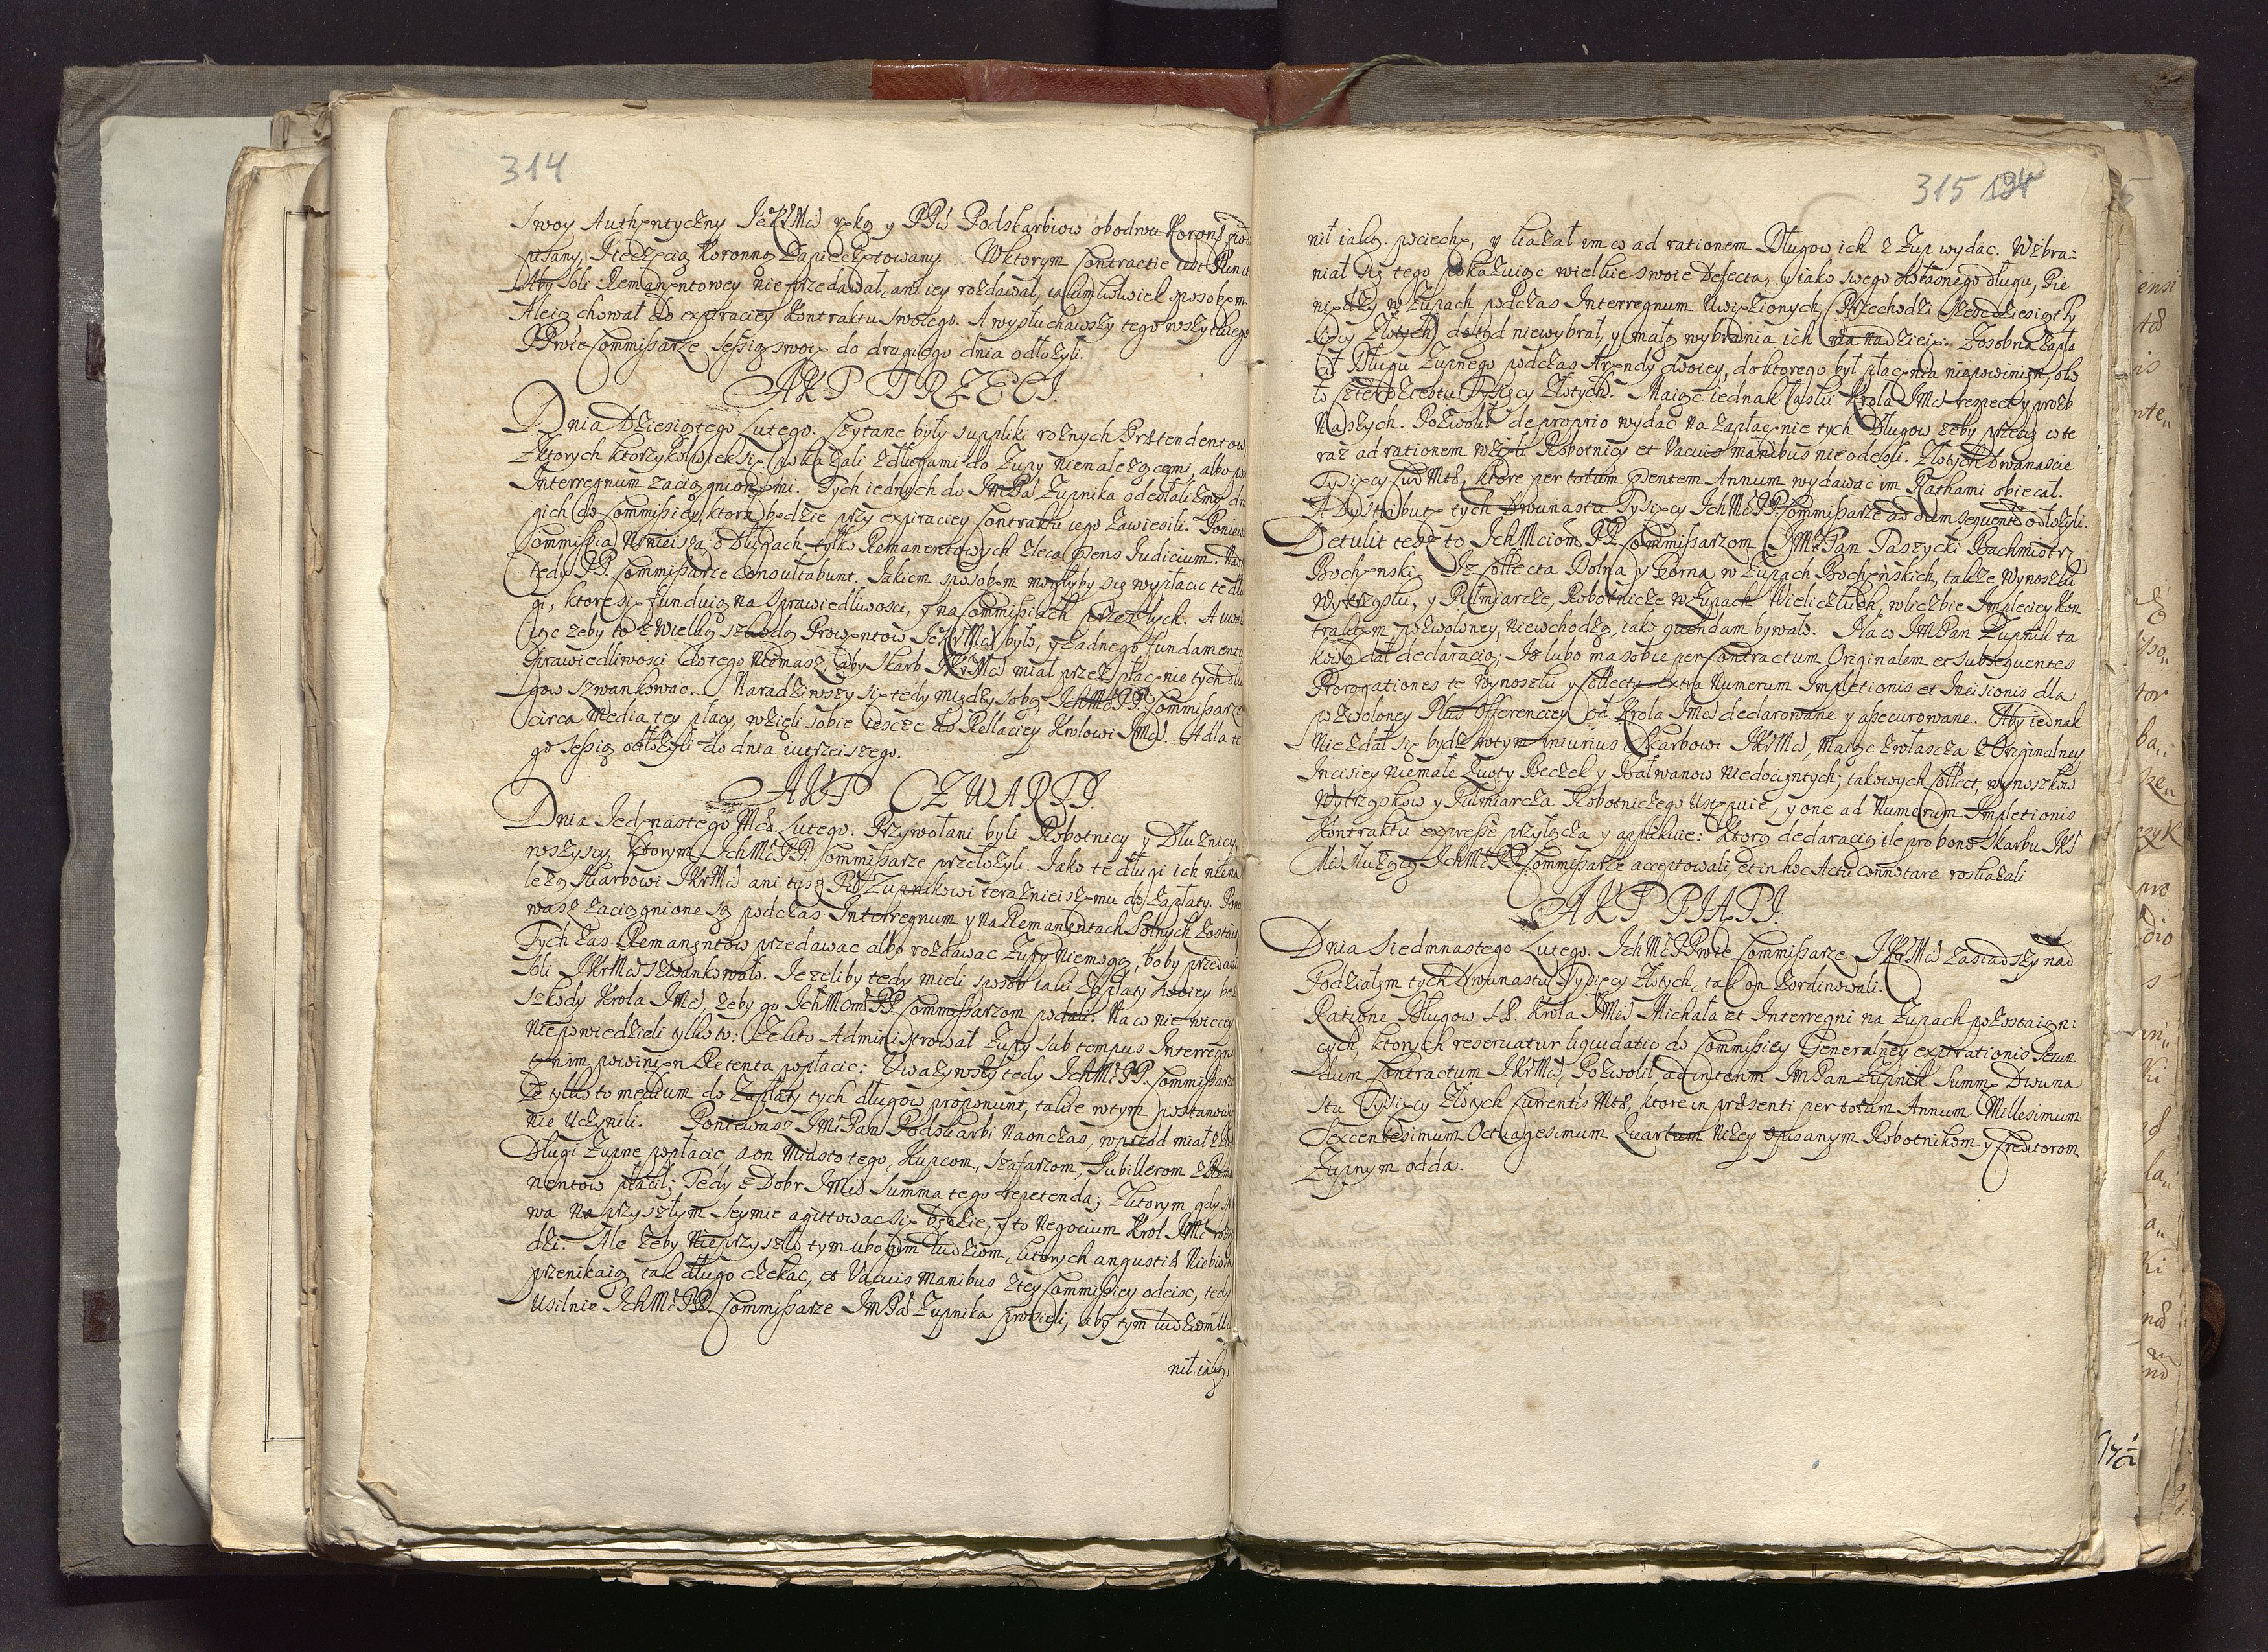 314
Swoy Authentyczny Je° Kr Mci ręką y PPw Podskarbiow obodwu Koronny pod
pisany, Pieczęcią Koronną Zapieczętowany. Wktorym Contractie iest Punct
Aby Soli Remanentowey nieprzedawał, ani iey rozdawał, iakimkolwiek sposobem
Ale ią chował do expiraciey Kontraktu Swoiego. A wysłuchawszy tego wszytkiego
PPwie Commissarze Sessią swoię do drugiego dnia odłożyli.
AKT TRZECI.
Dnia Dziesiątego Lutego. Czytane były suppliki roznych Prætendentow
Zktorych ktorzykolwiek się pokazali zdługami do Zupy nienależącemi, albo po
Interregnum zaciągnionemi. Tych iednych do JmPa Zupnika odesłalismy dru
gich do Commissiey, ktora będzie przy expiraciey Contraktu iego Zawiesili. Poniew
Commissia Ninieisza o Długach tylko Remanentowych zleca pens Judicium. Nad
tedy PP. Commissarze Consultabunt. Jakiem sposobem mogłyby się wypłacic te dłu
gi, ktore się funduią na sprawiedliwosci, y na Commissiach przeszłych. A uwa
iąc zeby to z Wielką szkodą Prowentow Je Kr Mci było, y żadnego fundamentu
Sprawiedliwosci do tego Niemasz, aby Skarb JKr Mci miał przez płacenie tych dłu
gow szwankowac. Naradziwszy się tedy między sobą Ich Mć PP. Commissarze
circa Media tey płacy, wzięli sobie ieszcze do Rellaciey Krolowi JMci. A dla te
go Sessią odłożyli do dnia iutrzeiszego.
AKT CZWARTY.
Dnia Jedenastego Mca Lutego. Przywołani byli Robotnicy y Dłużnicy
wszyscy, ktorym Ich Mć PP. Commissarze przełożyli. Jako te długi ich niena
leżą Skarbowi JKrMci ani tysz PP Zupnikowi teraznieiszemu do zapłaty. Poni
wasz zaciągnione są podczas Interregnum y na Remanentach Solnych zostaią
Tych zas Remanentow przedawac albo rozdawac Zupy Niemogą, boby przedanie
Soli JKrMci szwankowało. Jezeliby tedy mieli sposob iaki Zapłaty swoiey bez
Szkody Krola JMci, zeby go IchMciom PP. Commissarzom podali. Na co nic więcey
Niepowiedzieli tylko to: Ze kto Administrował Zupy sub tempus Interregni
ten im powinien Retenta popłacic: Uważywszy tedy IchMć PP. Commissarze
Ze tylko to medium do Zapłaty tych długow proponunt, takie wtym postanowie
nie Uczynili. Poniewasz JMć Pan Podskarbi Naonczas, wprzod miał z Zup
Długi Zupne popłacic a on Miasto tego, Kupcom, Szafarzom, Jubillerom z Rema
nentow płacił; Tedy z Dobr JMci Summa tego repetenda; Zktorym gdy spra
wa Na przyszłym Seymie agittowac się będzie, y to Negocium Krol JMć rozsą
dzi. Ale żeby Nieprzyszło tym ubogim ludziom, ktorych angustiæ Niebiosa
przenikaią, tak długo czekac, et Vacuis Manibus z tey Commissiey odeisc, tedy
Usilnie IchMć PP. Commissarze JmPa Zupnika prosieli, aby tym ludziom U
nił iaką
315 194
nił iaką pociechę, y kazał im co ad rationem Długow ich z Zup wydac. Wzbra:
niał się tego pokazuiąc wielkie swoie Defecta, y iako swego własnego długu, Pie
niędzy w Zupach podczas Interregnum Uwięzionych (Przechodzi Szescdziesiąt Ty
sięcy Złotych) dotąd niewybrał, y małą wybrania ich ma Nadzieię. Zosobna zapła
cił Długu Zupnego podczas Arendy swoiey, do ktorego był płacenia niepowinien, oko
ło Czterdziestu Tysięcy Złotych. Maiąc iednak łaski Krola JMci respect y prozb
Naszych. Pozwolił de proprio wydac Na zapłacenie tych Długow żeby przecię co te
raz ad rationem wzięli Robotnicy et Vacuis manibus nie odeszli. Złotych Dwanascie
Tysięcy Cur Mtæ, ktore per totum Pñtem Annum wydawac im Rathami obiecał.
A Dystributę tych Dwunastu Tysięcy IchMć PP. Commissarze ad diem sequentē odłożyli.
Detulit tesz to IchMciom PP. Commissarzom JMć Pan Taszycki Bachmistrz
Bochenski, Iż Collecta Dolna y Gorna w Zupach Bocheńskich, takze Wynoszki
Wytrząski, y Pulmiarcze, Robotnicze w Zupach Wielickich, wliczbie Impleciey Kon
traktem pozwoloney, niewchodzą, iako quondam bywało. Na co JMPan Zupnik ta
kową dał declaracią; Iż lubo ma sobie per Contractum Originalem et Subsequentes
Prorogationes te Wynoszki y Collecty extra Numerum Impletionis et Incisionis dla
pozwoloney Plus Offerenciey od Krola JMci declarowane y asecurowane. Aby iednak
Niezdał się bydz wtym iniurius Skarbowi JKrMci, Maiąc zwłascza z Originalney
Incisiey Niemałe kwoty Beczek y Bałwanow Niedocięntych; takowych Collect, wynoszkow
Wytrząskow y Pulmiarcza Robotniczego Ustępuie, y one ad Numerum Impletionis
Kontraktu expresse przyłącza y applikuie: Ktorą declaracią ile pro bono Skarbu JKr
Mci służącą IchMć PP. Commissarze acceptowali, et in hoc Actu connotare roskazali
AKT PIĄTY.
Dnia Siedmnastego Lutego. IchMć PPwie Commissarze JKrMci zasiadszy nad
Podziałem tych Dwunastu Tysięcy Złotych, tak on zordinowali.
Ratione Długow S. Krola JMci Michała et Interregni na Zupach pozostaięn:
cych, ktorych reservatur liquidatio do Commissiey Generalney expirationis secun
dum Contractum JKrMci, Pozwolił ad interim JmPan Zupnik Summę Dwuna
stu Tysięcy Złotych Currentis Mtæ, ktore in præsenti per totum Annum Millesimum
Sexcentesimum Octuagesimum Quartum Niżey opisanym Robotnikom y Creditorom
Zupnym odda.